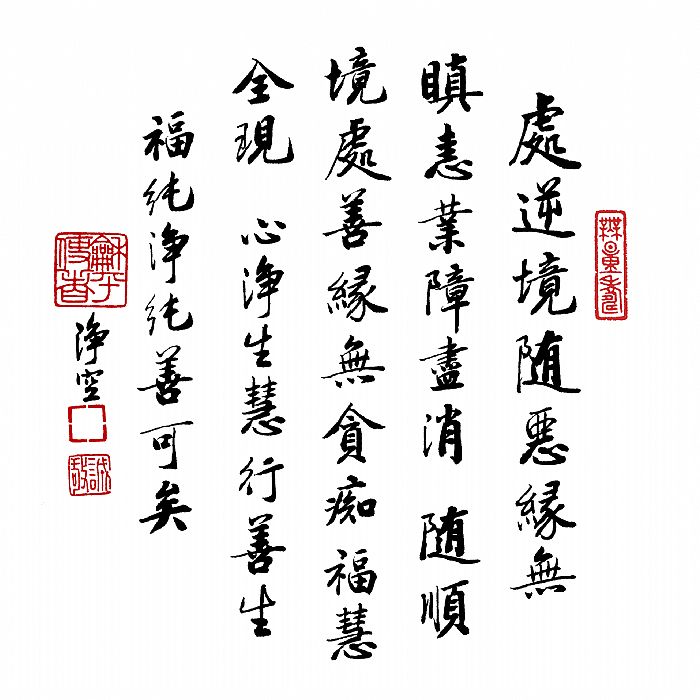 無量壽
處逆境随惡緣無
瞋恚業障盡消 随順
境處善緣無貪痴福慧
全現 心淨生慧行善生
福純淨純善可矣
淨空
誠敬